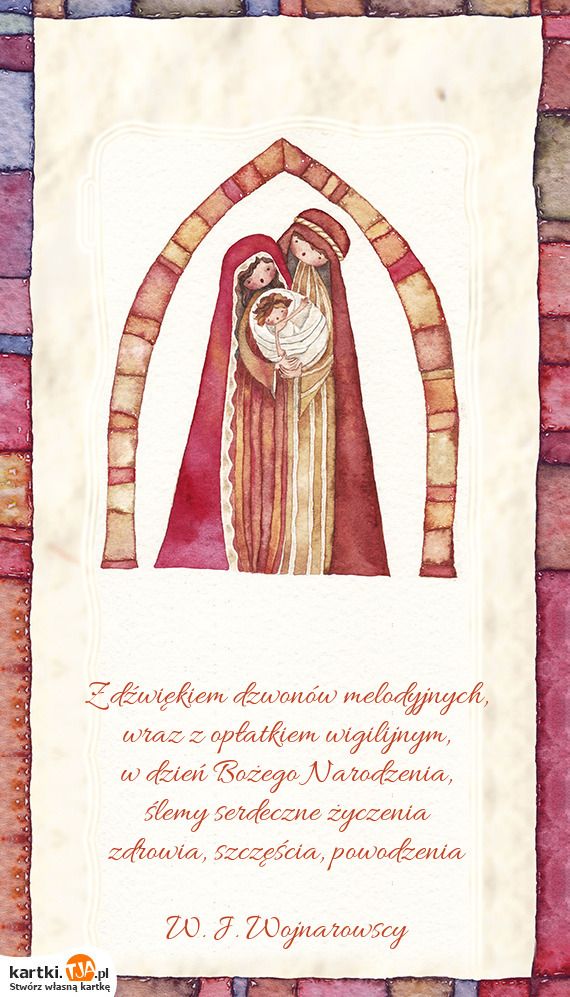 Z dźwiękiem dzwonów melodyjnych,
wraz z opłatkiem wigilijnym,
w dzień Bożego Narodzenia,
ślemy serdeczne życzenia
zdrowia, szczęścia, powodzenia
W. J. Wojnarowscy
kartki.TJA.pl
Stwórz własną kartkę